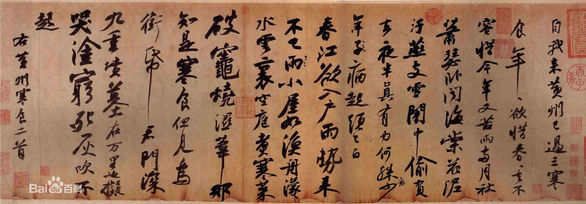 自我來黃州已過三寒
食年〻欲惜春〻去不
容惜今年又苦雨兩月秋
蕭瑟卧聞海棠花泥
汙燕支雪闇中偷負
去夜半真有力何殊病少
年子病起頭已白
春江欲入戶雨勢來
不已雨小屋如漁舟濛〻
水雲裏空庖煮寒菜
破竈燒濕葦那
知是寒食但見烏
銜帋君門深
九重墳墓在万里也擬
哭塗窮死灰吹不
起
右黃州寒食二首
Bai百科